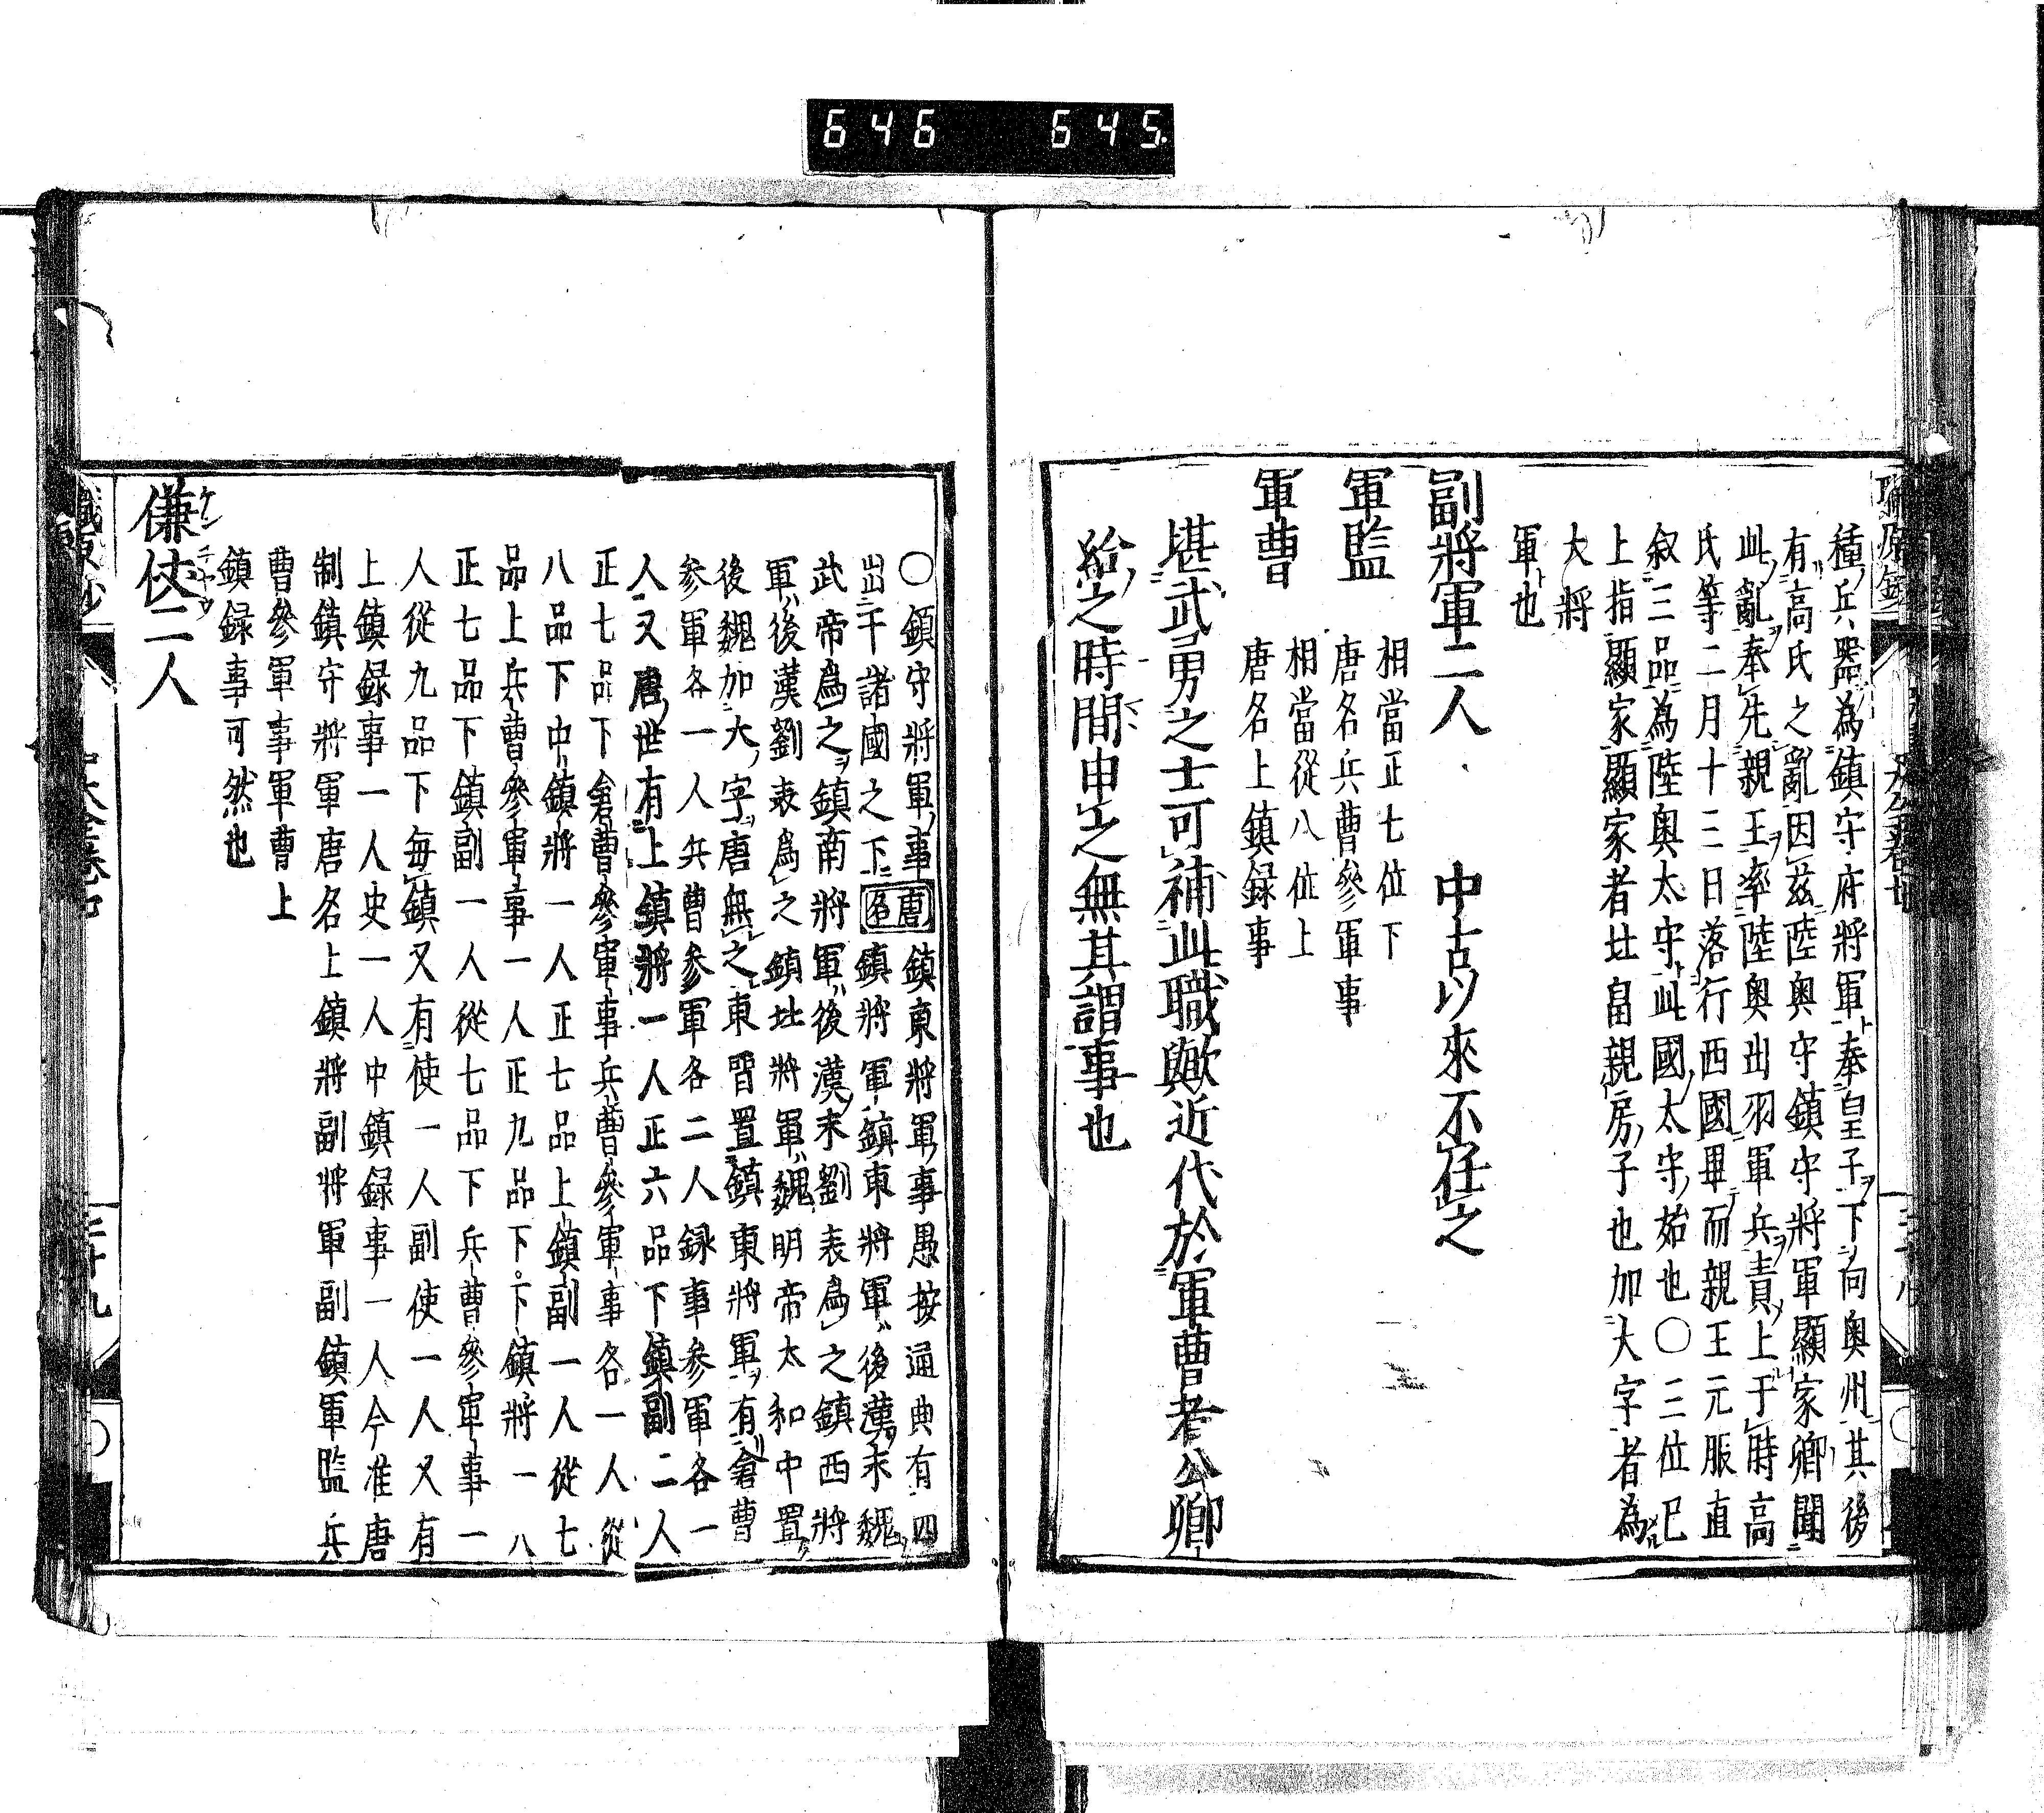 646 645
種兵器為鎮守府將軍奉皇子下向奥州其後
有高氏之亂因茲陸奥守鎮守將軍顯家卿聞
此亂奉先親王率陸奥出羽軍兵責上于時高
氏等二月十三日落行西國畢而親王元服直
叙三品為陸奥太守此國太守始也〇三位已
上指顯家顯家者北畠親房子也加大字者為
大將
軍也
副將軍二人 中古以來不任之
相當正七位下
軍監 唐名兵曹參軍事
相當從八位上
軍曹 唐名上鎮録事
堪武勇之士可補此職歟近代於軍曹者公卿
給之時間申之無其謂事也
〇鎮守將軍事唐名鎮東將軍事愚按通典有四
出于諸國之下 鎮將軍鎮東將軍後漢末魏
武帝為之鎮南將軍後漢末劉表為之鎮西將
軍後漢劉表為之鎮北將軍魏明帝太和中置
後魏加大字唐無之東晋置鎮東將軍有倉曹
參軍各一人兵曹參軍各二人録事參軍各一
人又唐世有上鎮將一人正六品下鎮副二人
正七品下倉曹參軍事兵曹參軍事各一人從
八品下中鎮將一人正七品上鎮副一人從七
品上兵曹參軍事一人正九品下下鎮將一八
正七品下鎮副一人從七品下兵曹參軍事一
人從九品下每鎮又有使一人副使一人又有
上鎮録事一人史一人中鎮録事一人今准唐
制鎮守將軍唐名上鎮將副將軍副鎮軍監兵
曹參軍事軍曹上
鎮録事可然也
傔仗二人
ケンニヤウ